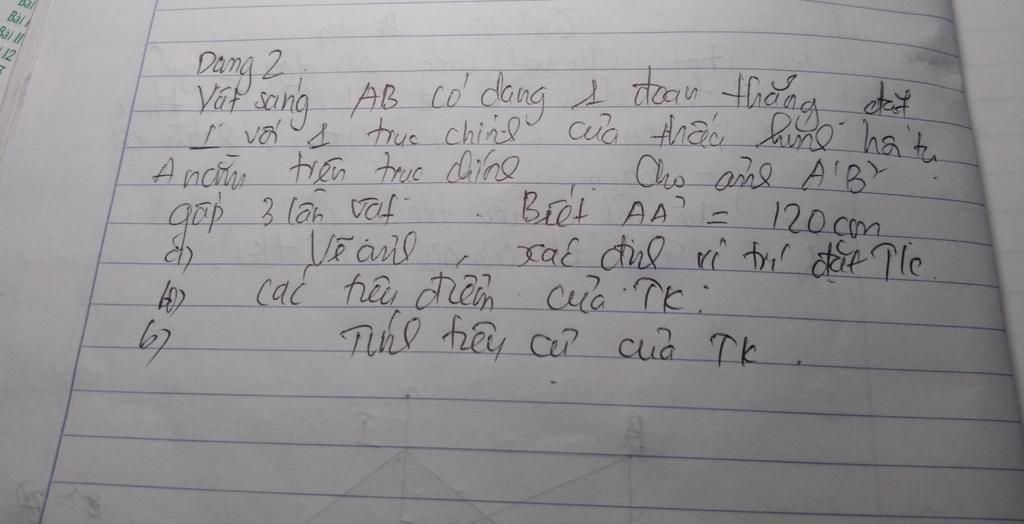 Bài
Bài 1
Bài 11
12
Dạng 2
Vật sáng AB có dạng 1 đoạn thẳng đặt
⊥ với 1 trục chính của thấu kính hội tụ.
A nằm trên trục chính Cho ảnh A'B'
gấp 3 lần vật. Biết AA' = 120 cm
a) Vẽ ảnh, xác định vị trí đặt TK.
các tiêu điểm của TK.
b) Tính tiêu cự của TK.
I